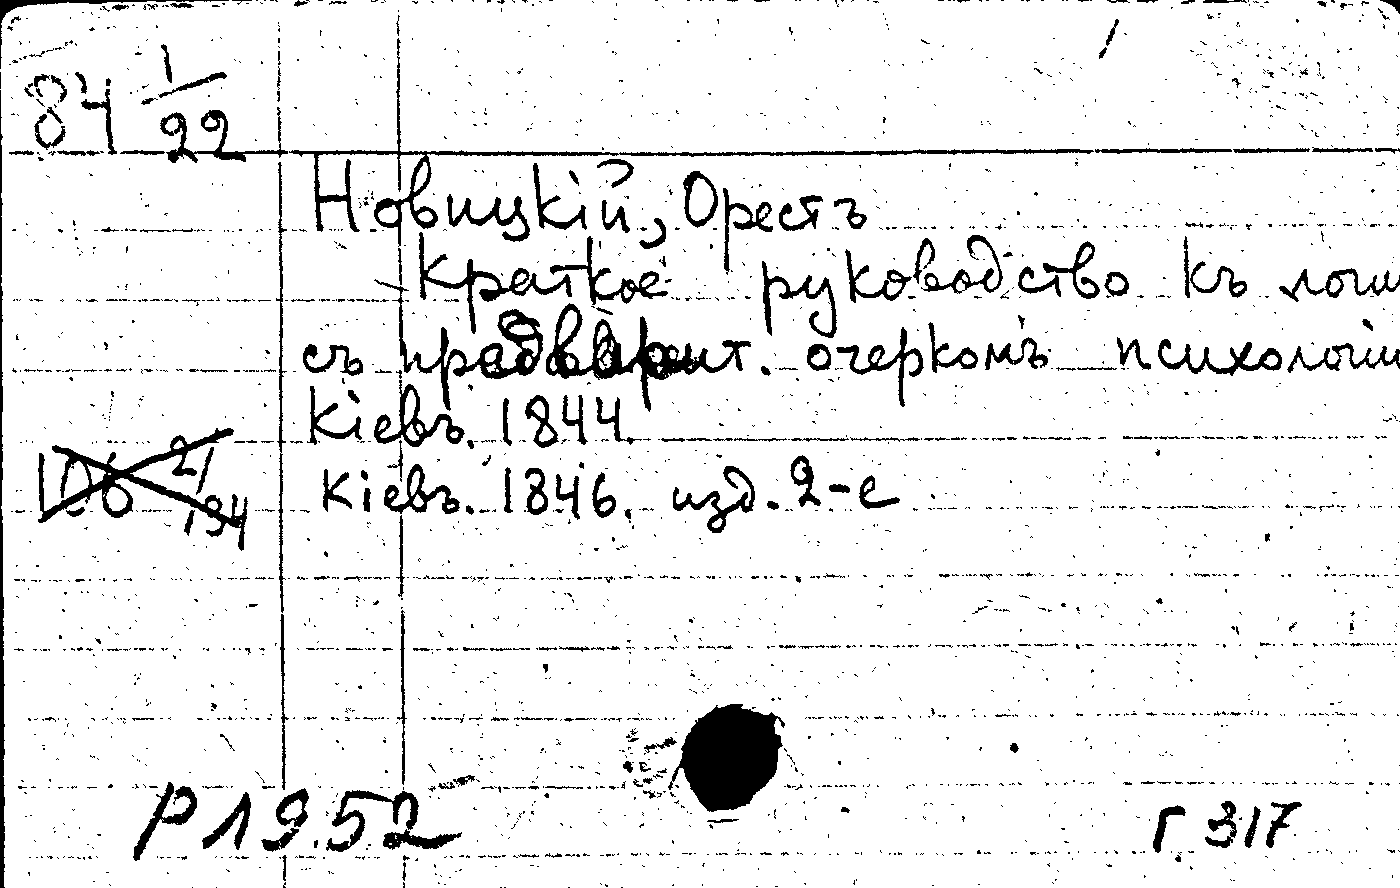 84 1/22
Новицкій, Орестъ
Краткое руководство къ логи
съ предварит. очеркомъ психологіи
Кіевъ. 1844.
106 21/134
Кіевъ. 1846. изд. 2-е
Р 19.52
Г 317